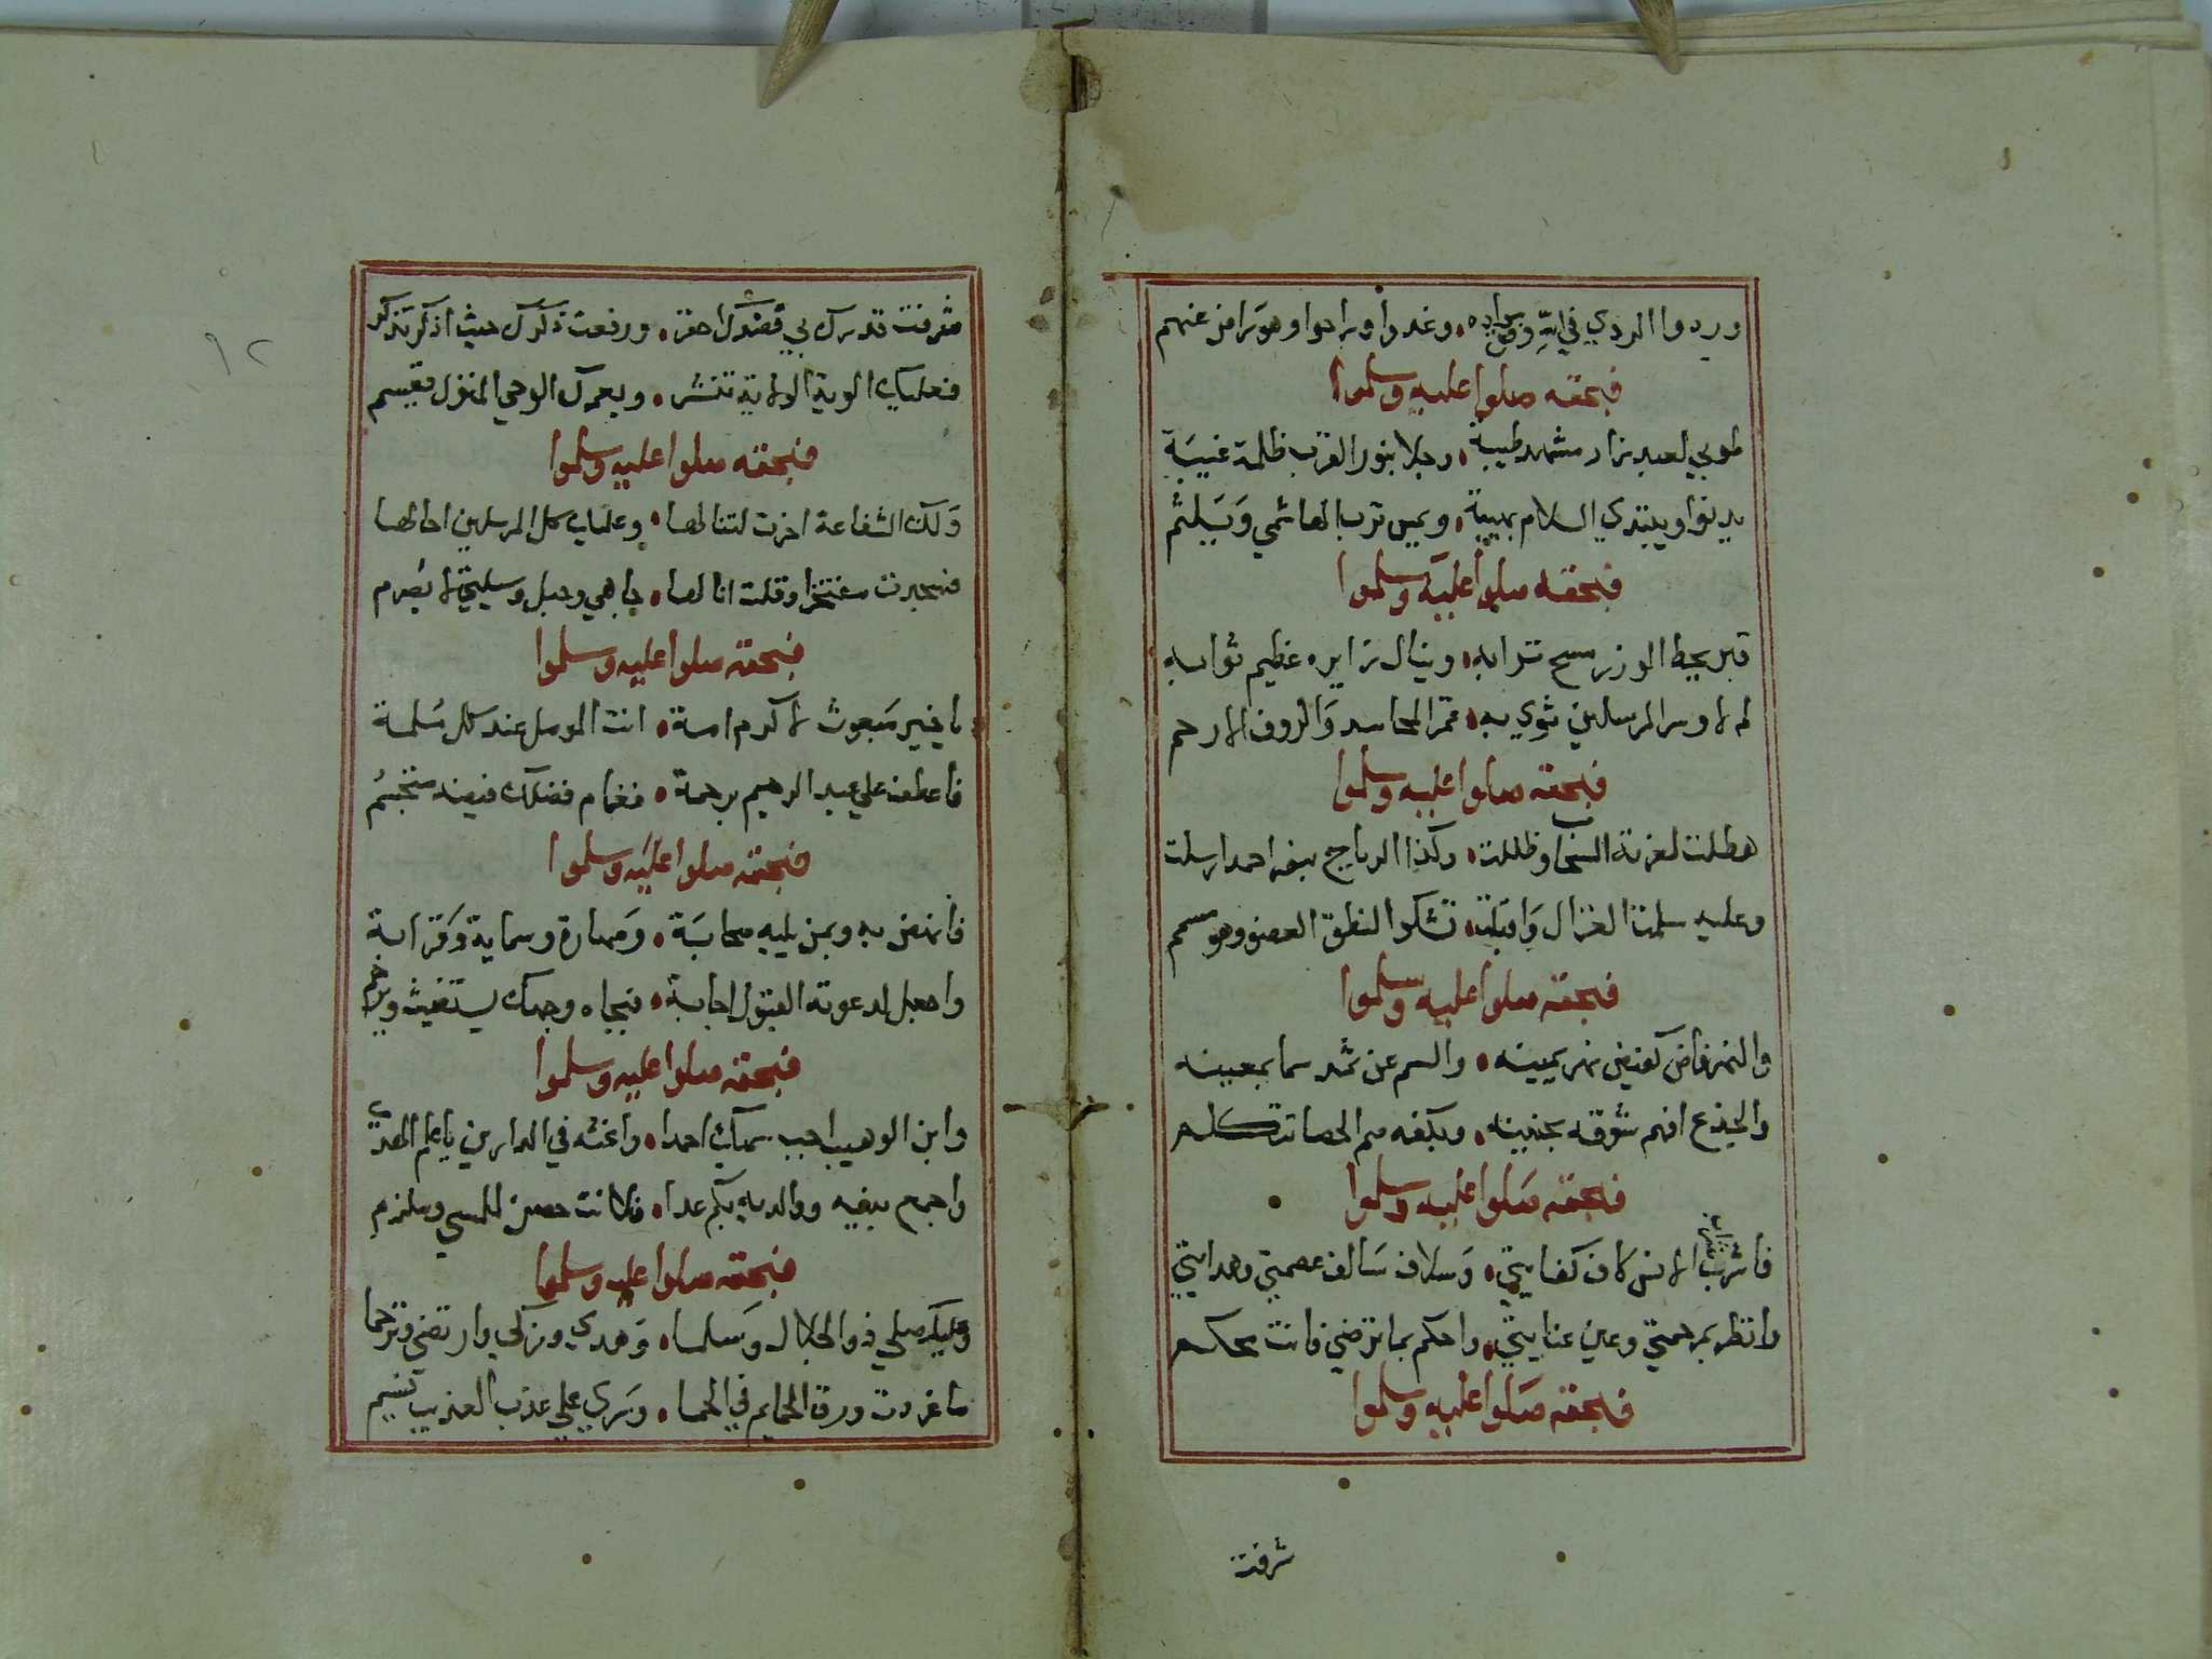 وردوا الردي في ايِّ وصوابه ٥ وغدوا وراحوا وهو راض عنهم
فبحقه صلوا عليه وسلموا
طوبي لعبد زار مشهد طيبة ٥ وجلا بنور القرب ظلمة غيبَة
يدنوا ويبتدي السلام بهيبة ٥ ويمس ترب الهاشمي وَيَلثم
فبحقه صلوا عليه وسلموا
قبر يحط الوزر مسح ترابه ٥ وينال زايره عظيم ثوابه
لم لا وسر المرسلين ثوي به ٥ قمر المحامد وَالروف الارحم
فبحقه صلوا عليه وسلموا
هطلت لعزته السحاب وظللت ٥ وكذا الرياح ببغي احمد ارسلت
وعليه سلمت الغزال وَاقبلت ٥ تشكوا النطق العضو وهو مسمم
فبحقه صلوا عليه وسلموا
والنهر فاض كفيض نهر يمينه ٥ والسم عن ثمد سما بمعينه
والجذع افهم شوقه بحنينه ٥ وبكفه صم الحصا تتكلم
فبحقه صلوا عليه وسلموا
فاشرب الانس كاف كفايتي ٥ وَسلاف سَالف عصمتي وهدايتي
وانظر برحمتي وعين عنايتي ٥ واحكم بما ترضي فانت محكم
فبحقه صلوا عليه وسلموا
شرفت
٩٢
شرفت قدرك بي فضدك احقر ٥ ورفعت ذكرك حيث اذكر تذكر
فعليك الوية الولاية تنشر ٥ وبعمرك الوحي المنزل مقسم
فبحقه صلوا عليه وسلموا
وَلك الشفاعة اخرت لتنالها ٥ وعليك كل المرسلين احالها
فسجدت مفتخرا وقلت انا لها ٥ جاهي وحبل وسيلتي لا يصرم
فبحقه صلوا عليه وسلموا
يا خير مَبعوث لاكرم امة ٥ انت المومل عند كل مُلمة
فاعطف علي عبد الرحيم برحمة ٥ فغمام فضلك فيضه متجسُم
فبحقه صلوا عليه وسلموا
فانهض به وبمن يليه صحابَة ٥ وَصهارة وحماية وَقرابة
واجعل لدعوته القبول اجابة ٥ فبجاه وجهك يستغيث ويرحم
فبحقه صلوا عليه وسلموا
وابن الوهيب اجب سميك احمدا ٥ واغثه في الدارين يا علم الهدي
واجمع بنيه ووالديه بكم غدا ٥ فلانت حصن للمسي وملزم
فبحقه صلوا عليه وسلموا
وعليك صلي ذو الجلال وَسلما ٥ وَهدي وزكي وارتضي وترحما
ما غردت ورق الحمايم في الحما ٥ وسَري علي عذب العذيب نسيم